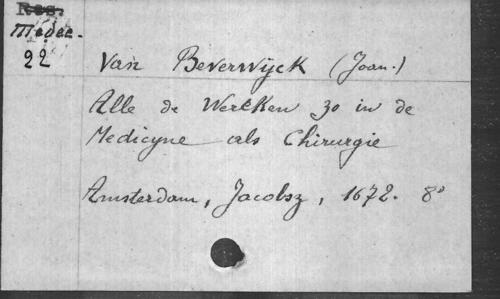 Res.
Medec.
22
Van Beverwijck (Joan.)
Alle de Wercken zo in de
Medicyne als Chirurgie
Amsterdam, Jacobsz, 1672. 8°